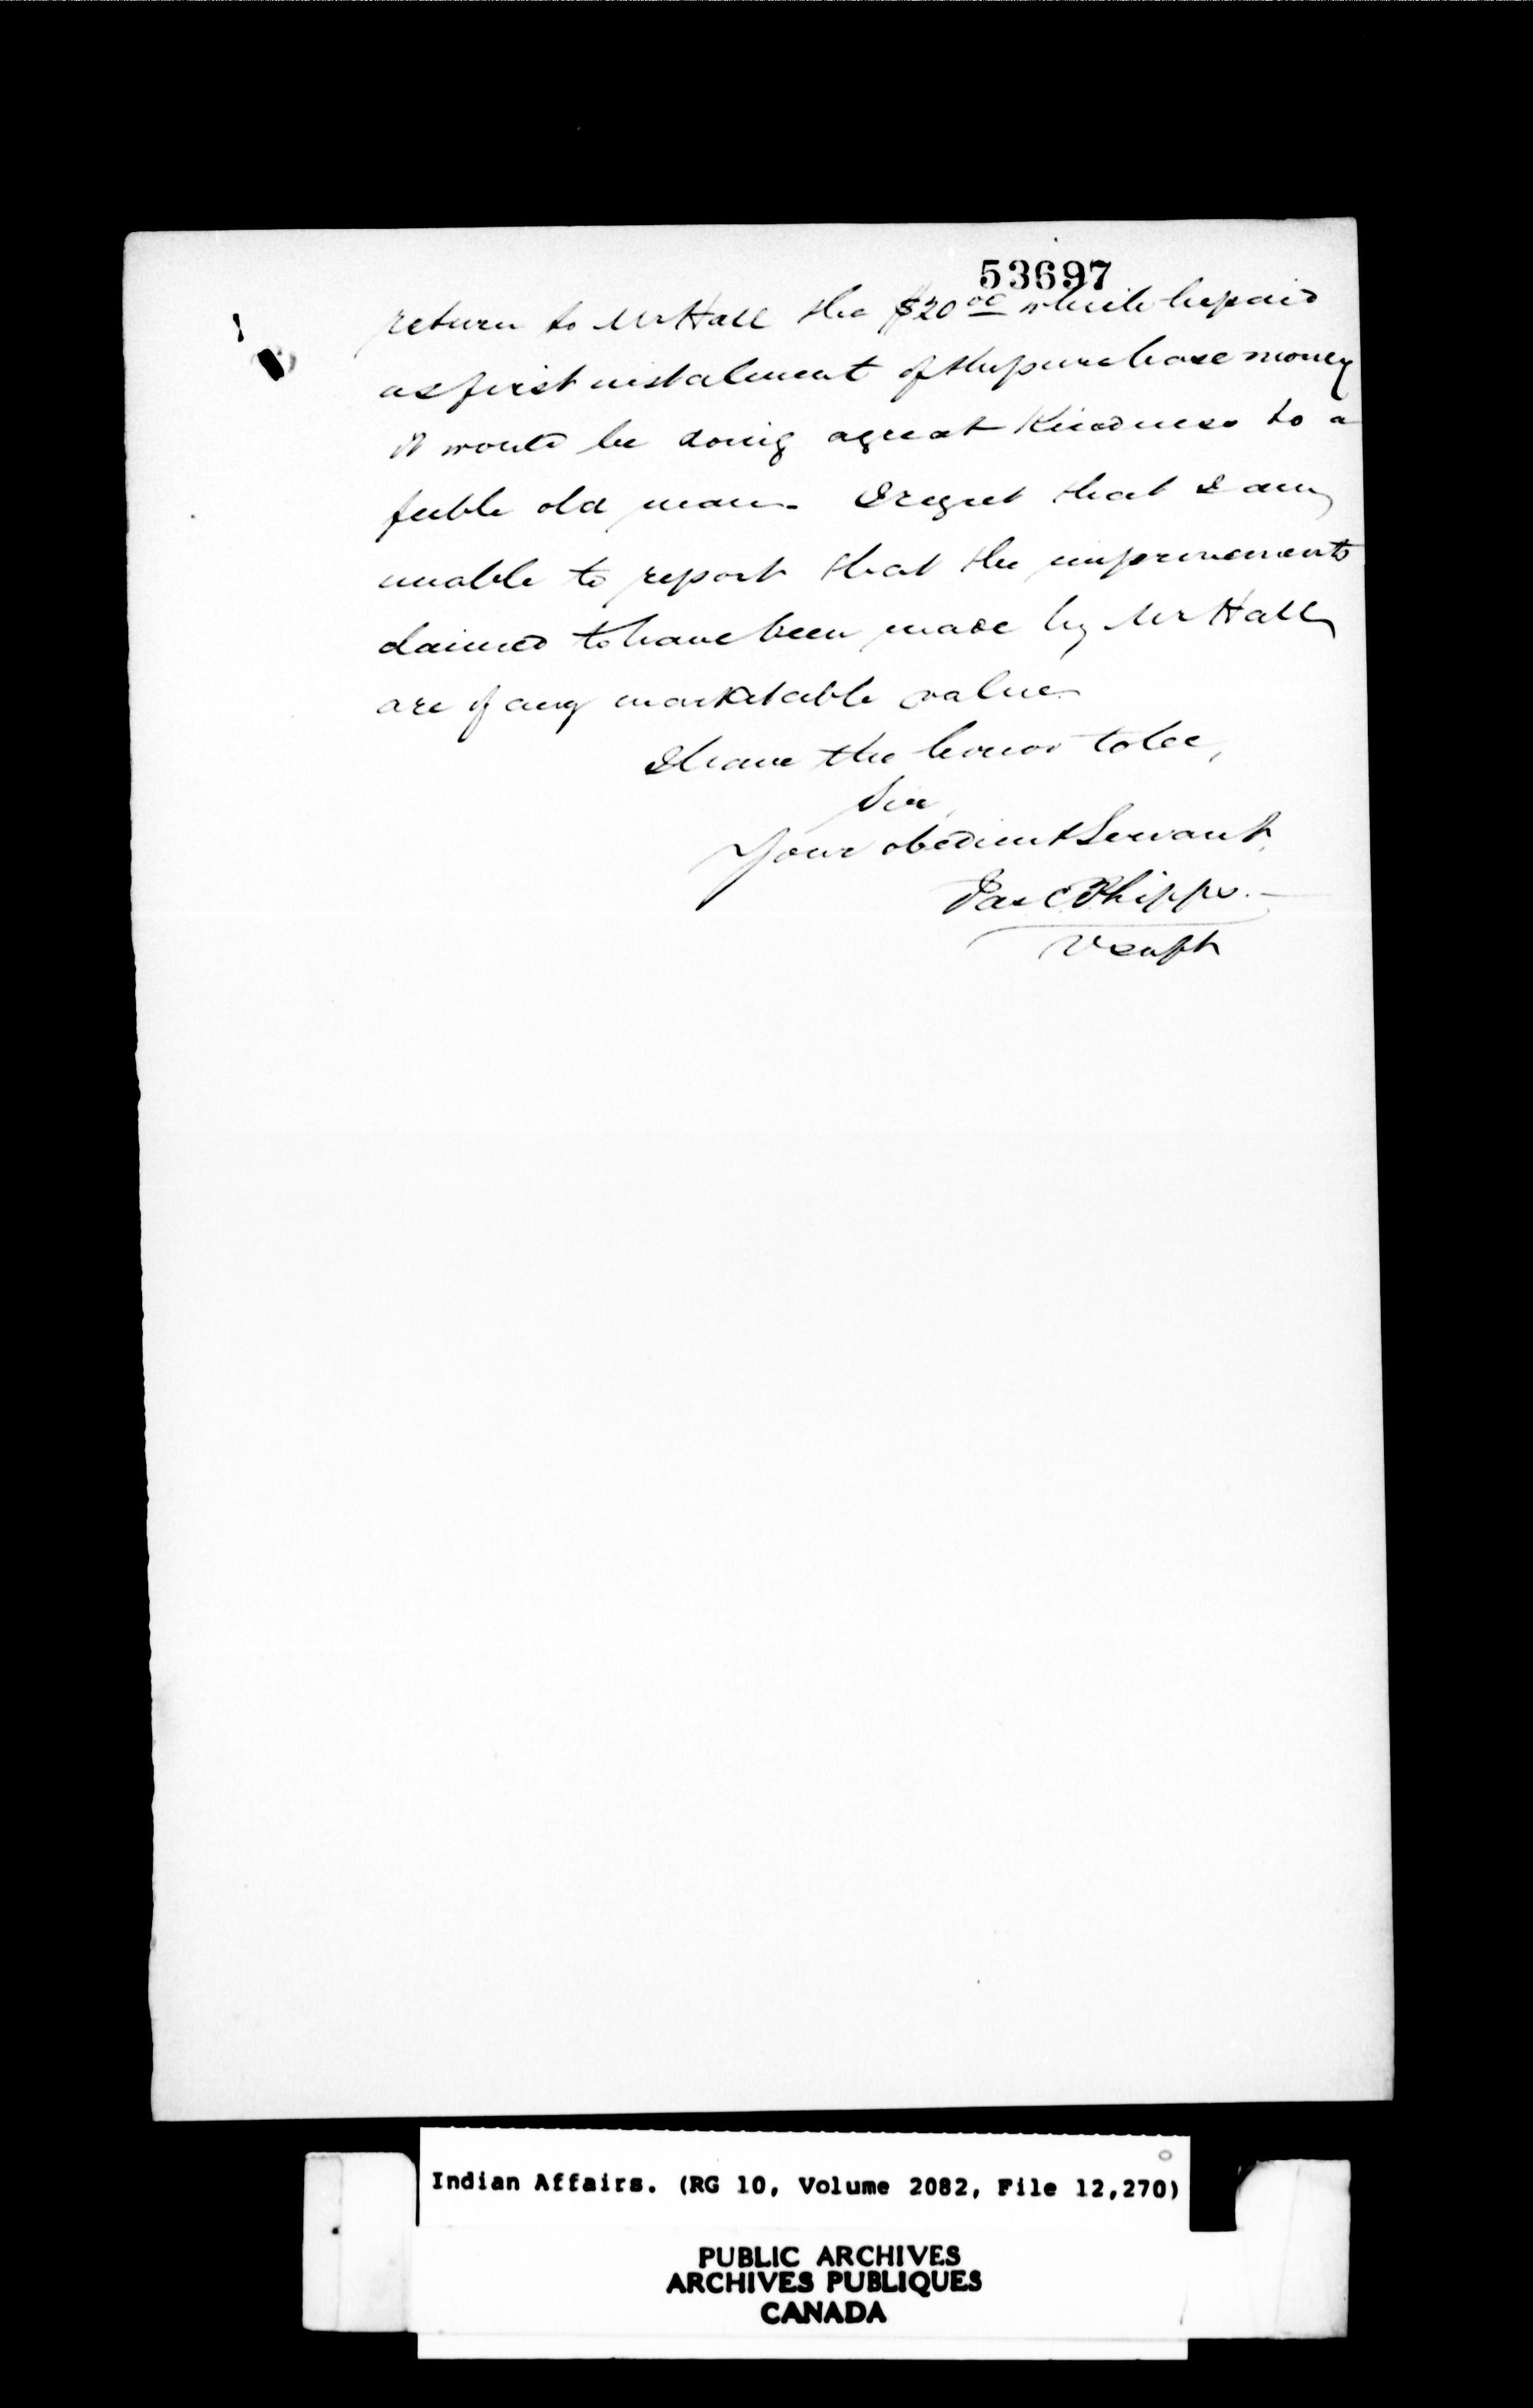 53697
return to Mr Hall the $20 00 which he paid
as first instalment of the purchase money
it would be doing a great Kindness to a
feeble old man. I regret that I am
unable to report that the improvements
claimed to have been made by Mr Hall
are of any marketable value
I have the honor to be,
Sir,
Your obedient Servant,
Jas C Phipps.
V Supt
Indian Affairs. (RG 10, Volume 2082, File 12,270)
PUBLIC ARCHIVES
ARCHIVES PUBLIQUES
CANADA